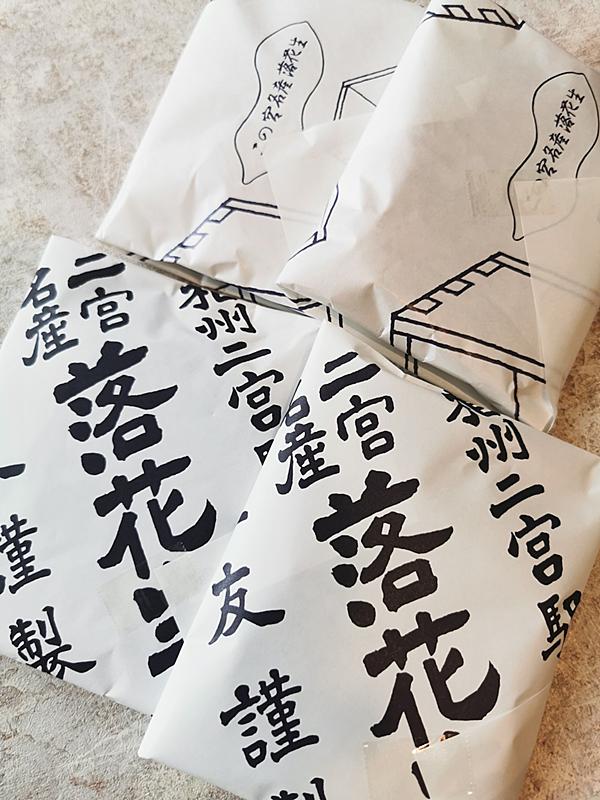 二の宮名産落花生
宮名産落花生
州二宮
二宮
名産
落花
謹製
州二宮駅
二宮
名産
落花
友 謹